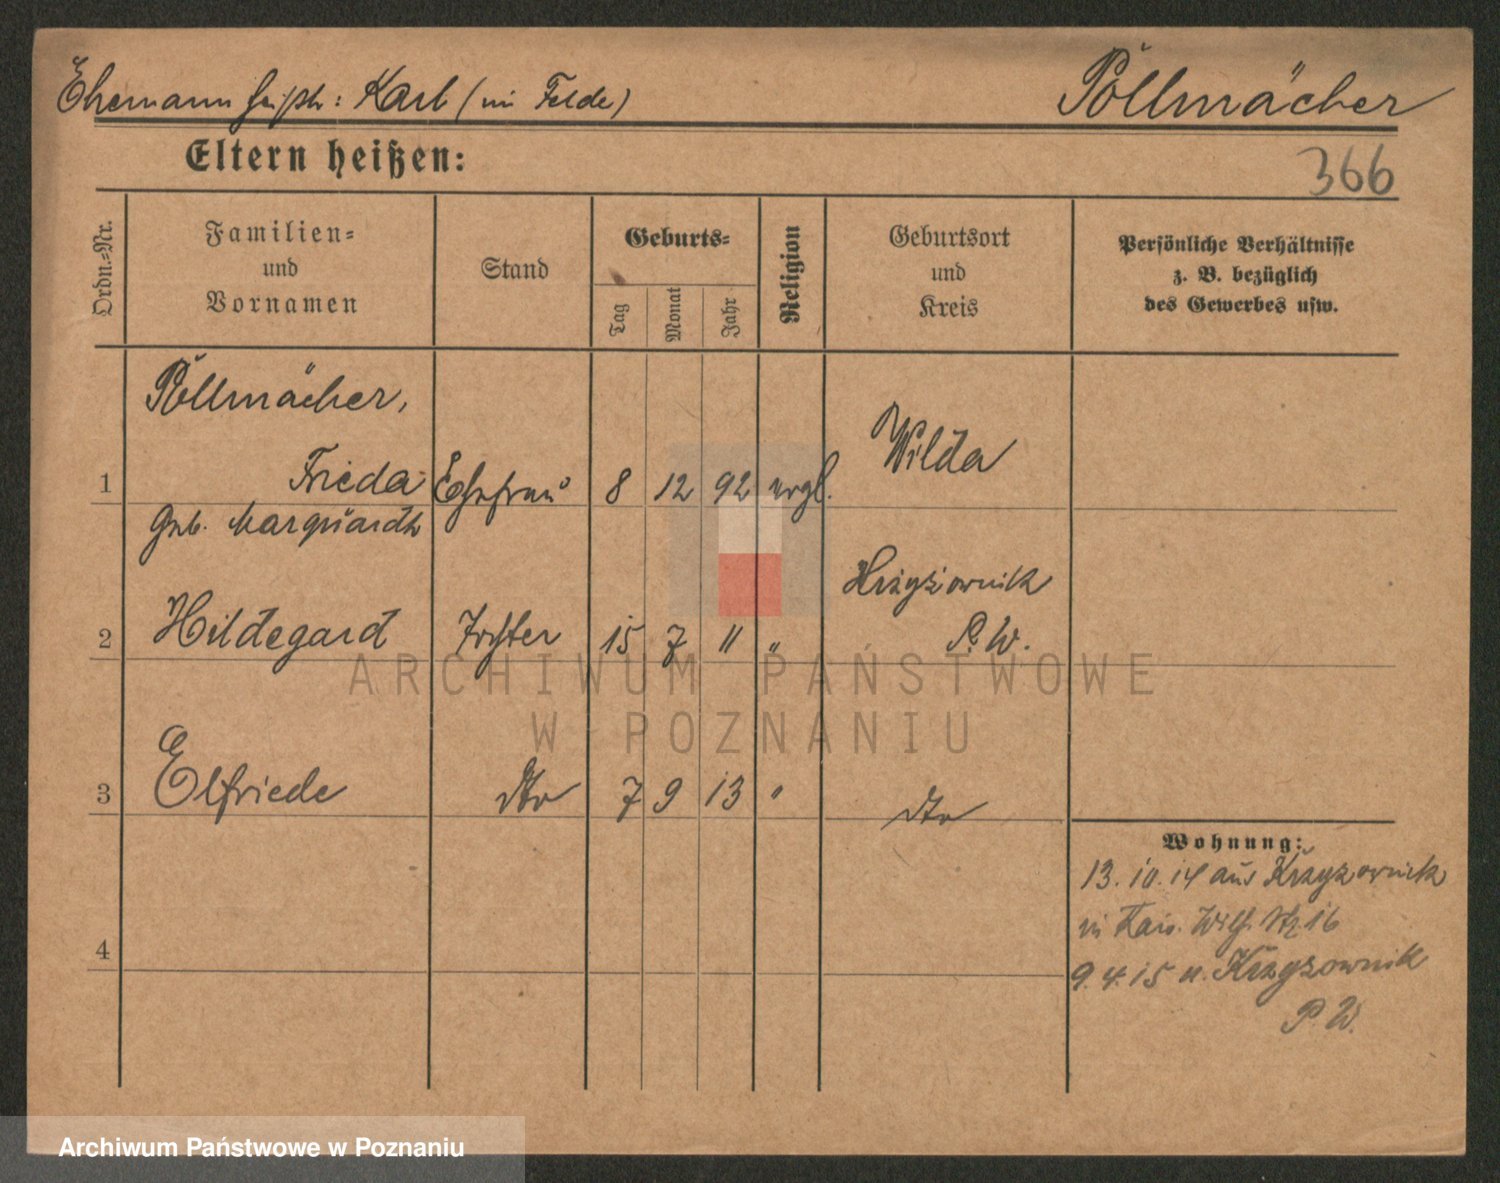 Ehemann heißt: Karl (im Felde)
Pöllmächer
Eltern heißen:
366
Ordn.-Nr.
Familien-
und
Vornamen
Stand
Geburts-
Tag
Monat
Jahr
Religion
Geburtsort
und
Kreis
Persönliche Verhältnisse
z. B. bezüglich
des Gewerbes usw.
Pöllmächer,
1 Frieda Ehefrau 8 12 92 evgl. Wilda
geb. Marquardt
Krzyżownik
2 Hildegard Tochter 15 7 11 " P. W.
3 Elfriede dto 7 9 13 " dto
Wohnung:
13.10.14 aus Krzyzownick
in Kais. Wilh. Str 16
4
9.4.15 n. Krzyzownik
P. W.
ARCHIWUM PAŃSTWOWE
W POZNANIU
Archiwum Państwowe w Poznaniu